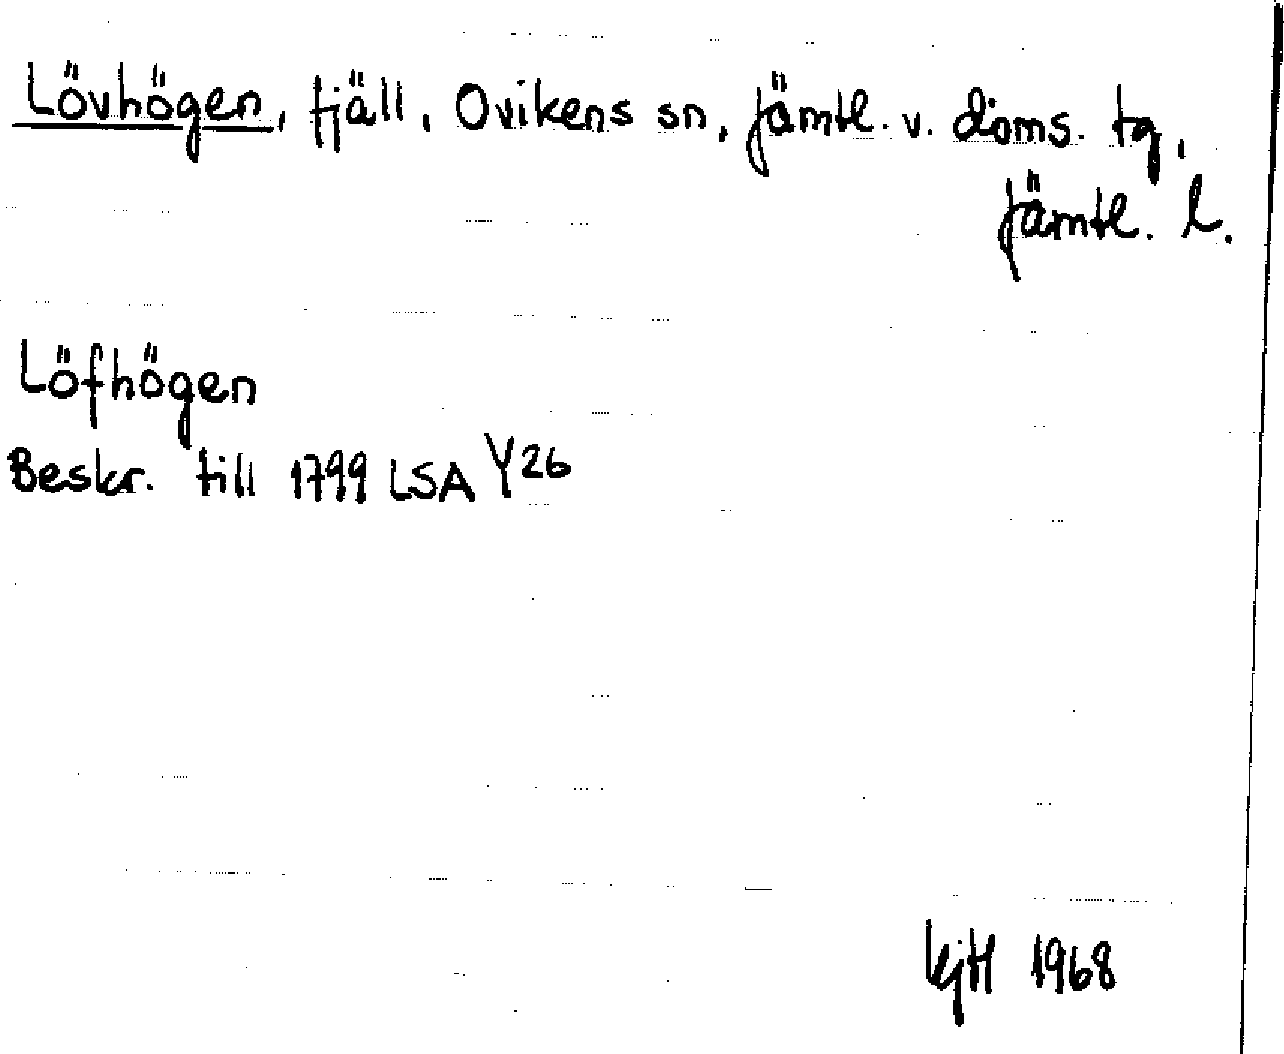 Lövhögen, fjäll, Ovikens sn, Jämtl. v. doms. tg,
Jämtl. l.
Löfhögen
Beskr. till 1799 LSA Y26
KjH 1968